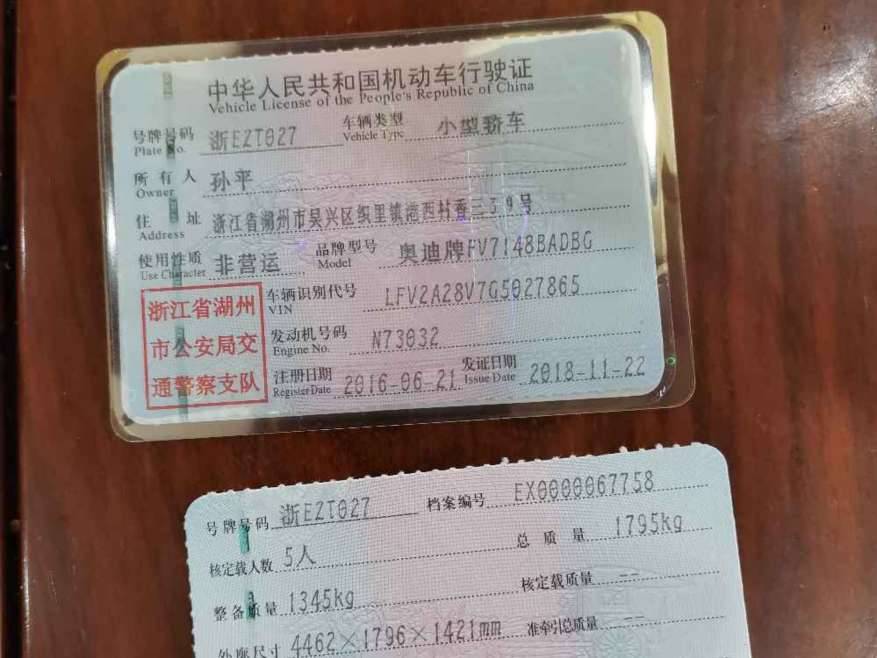 中华人民共和国机动车行驶证
Vehicle License of the People's Republic of China
号牌号码 浙EZT027 车辆类型 小型轿车
Plate No. Vehicle Type
所有人 孙平
Owner
住址 浙江省湖州市吴兴区织里镇港西村香三39号
Address
使用性质 非营运 品牌型号 奥迪牌FV7148BADBG
Use Character Model
浙江省湖州 车辆识别代号 LFV2A28V7G5027865
VIN
市公安局交 发动机号码 N73032
Engine No.
通警察支队 注册日期 2016-06-21 发证日期 2018-11-22
Register Date Issue Date
号牌号码 浙EZT027 档案编号 EX0000067758
核定载人数 5人 总质量 1795kg
整备质量 1345kg 核定载质量 --
外廓尺寸 4462×1796×1421mm 准牵引总质量 --